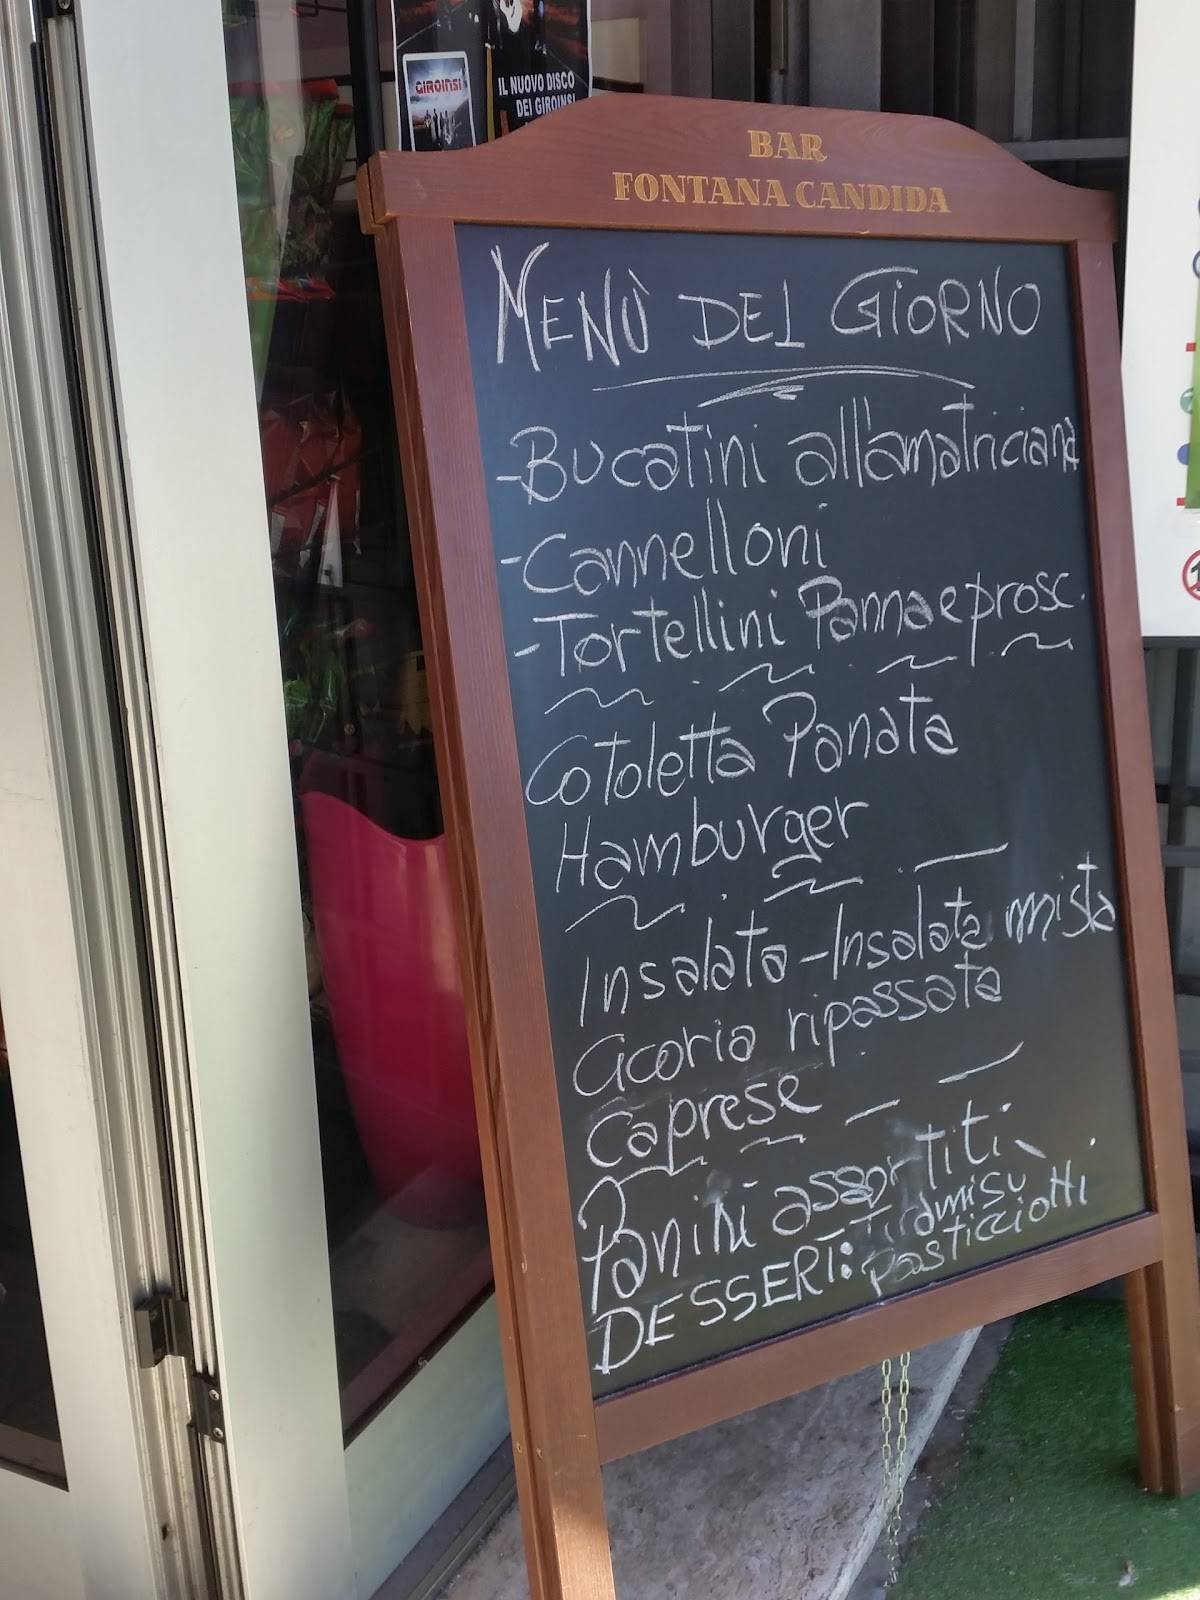 GIROINSI
IL NUOVO DISCO
DEI GIROINSI
BAR
FONTANA CANDIDA
MENÙ DEL GIORNO
-Bucatini all'amatriciana
-Cannelloni
-Tortellini Panna e prosc.
Cotoletta Panata
Hamburger
Insalata-Insalata mista
Cicoria ripassata
Caprese
Panini assortiti
DESSERT: Tiramisu
pasticciotti